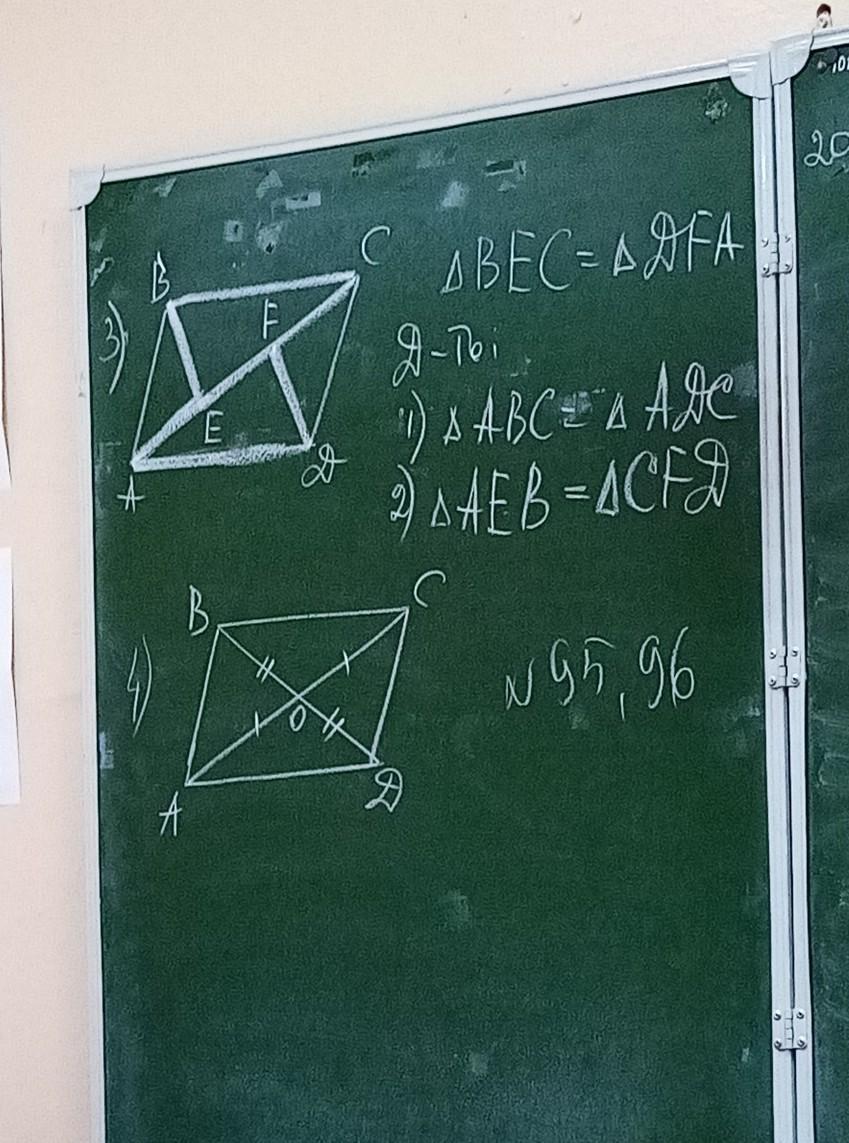 3)
B
C
F
E
A
D
△BEC = △DFA
Д-ть:
1) △ABC = △ADC
2) △AEB = △CFD
4)
B
C
O
A
D
N 95, 96
20